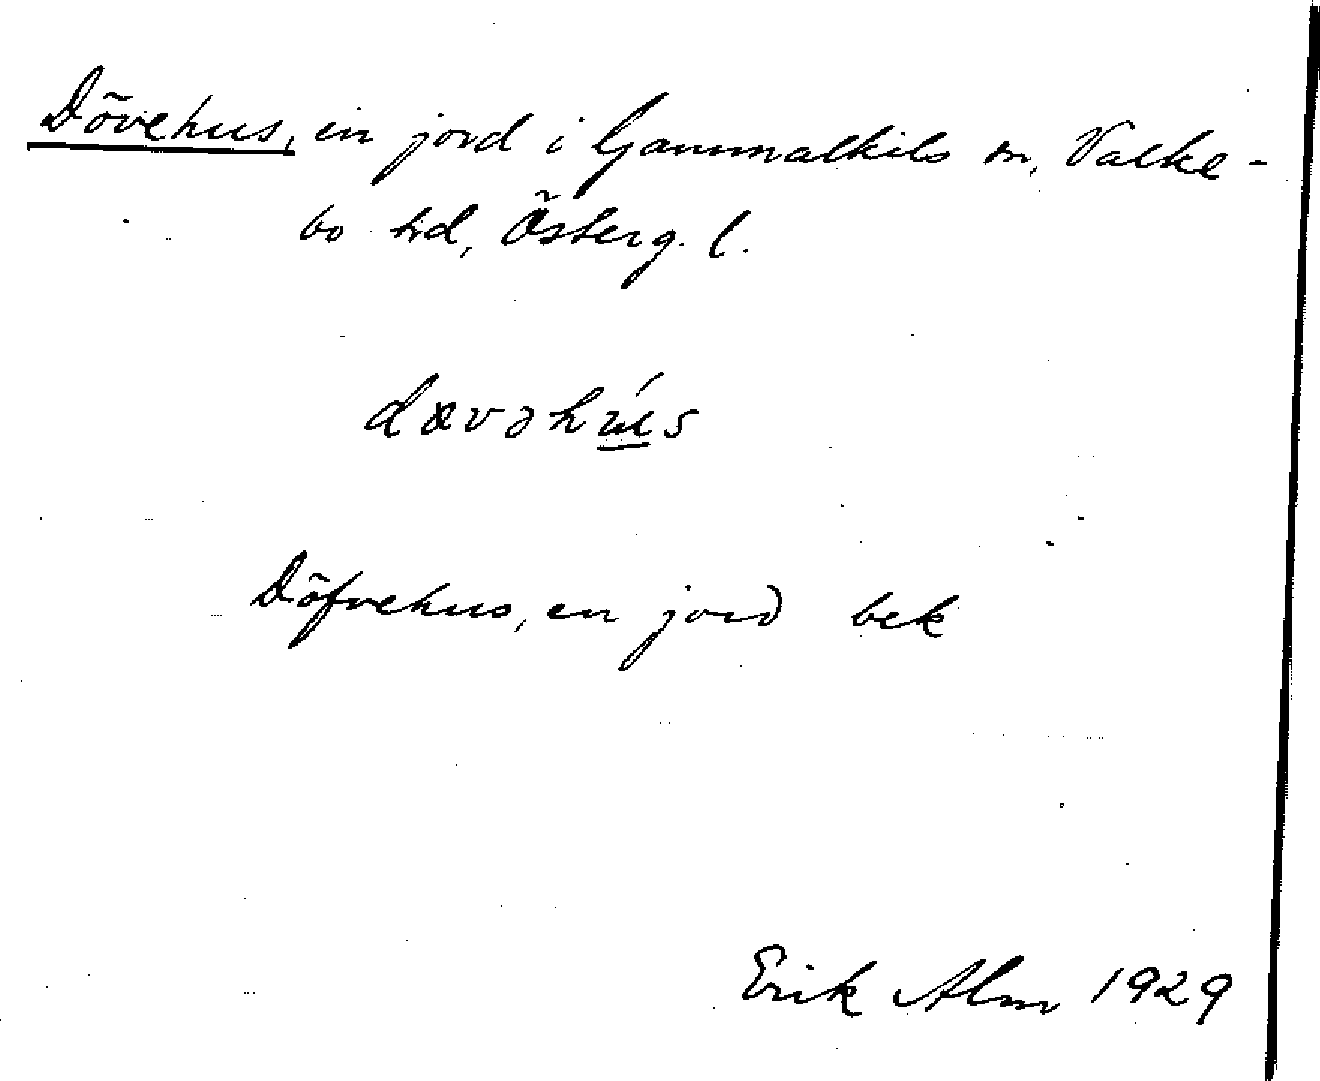 Dövehus, en jord i Gammalkils sn, Valke-
bo hd, Österg. l.
dævəhú̲s
Döfvehus, en jord bek
Erik Alm 1929